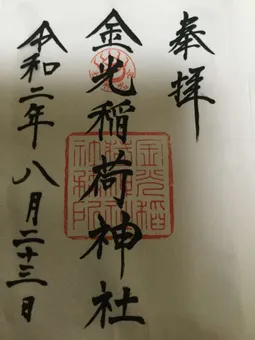 奉拝
金光稲荷神社
令和二年八月二十三日